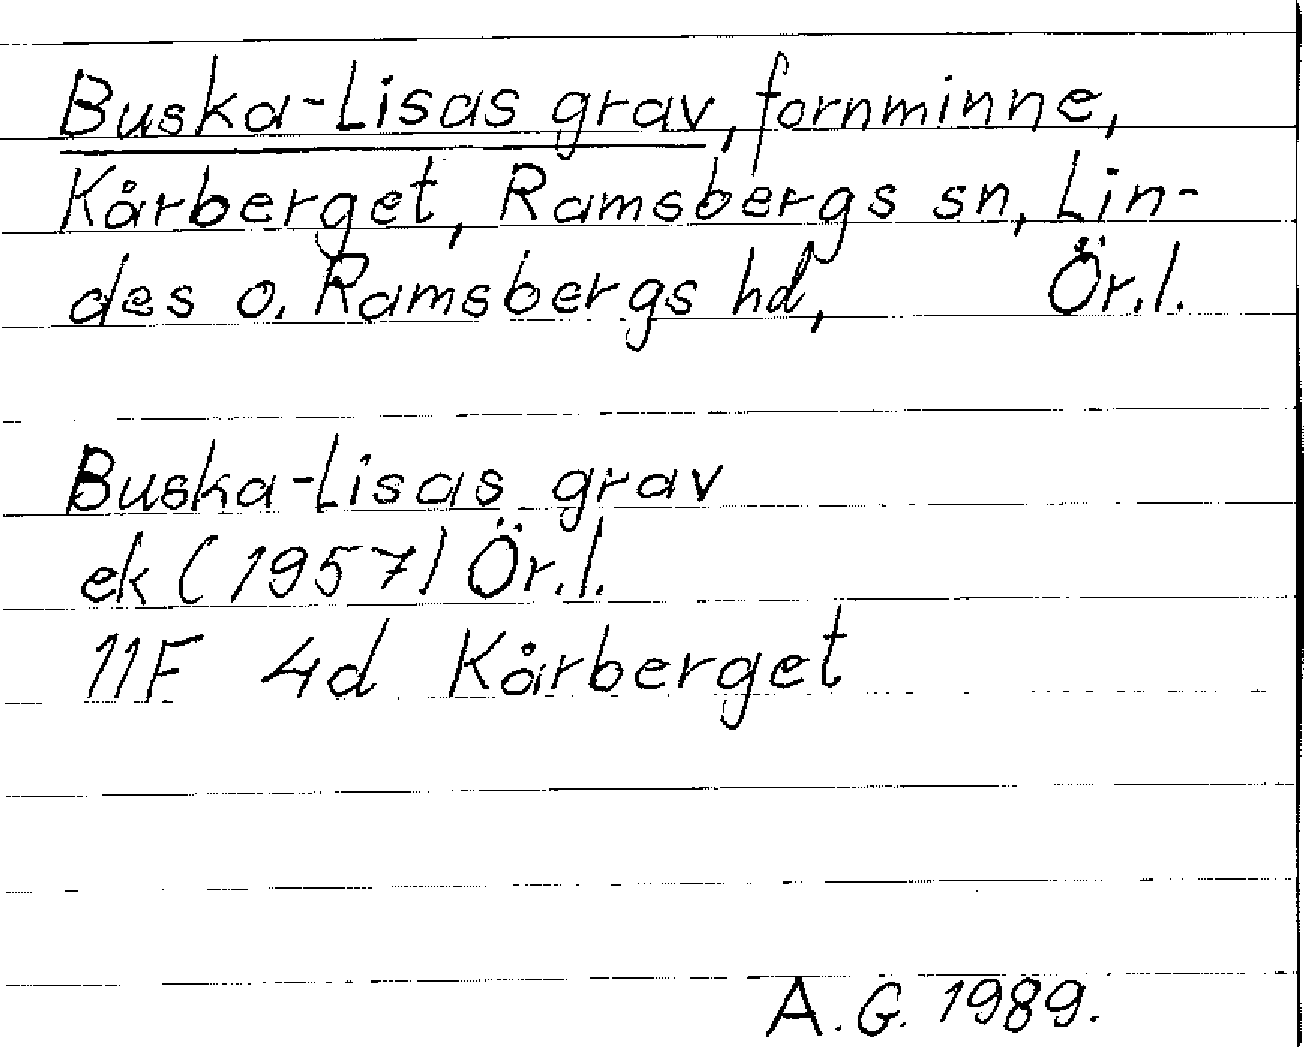 Buska-Lisas grav, fornminne,
Kårberget, Ramsbergs sn, Lin-
des o. Ramsbergs hd, Ör.l.
Buska-Lisas grav
ek (1957) Ör.l.
11F 4d Kårberget
A.G. 1989.